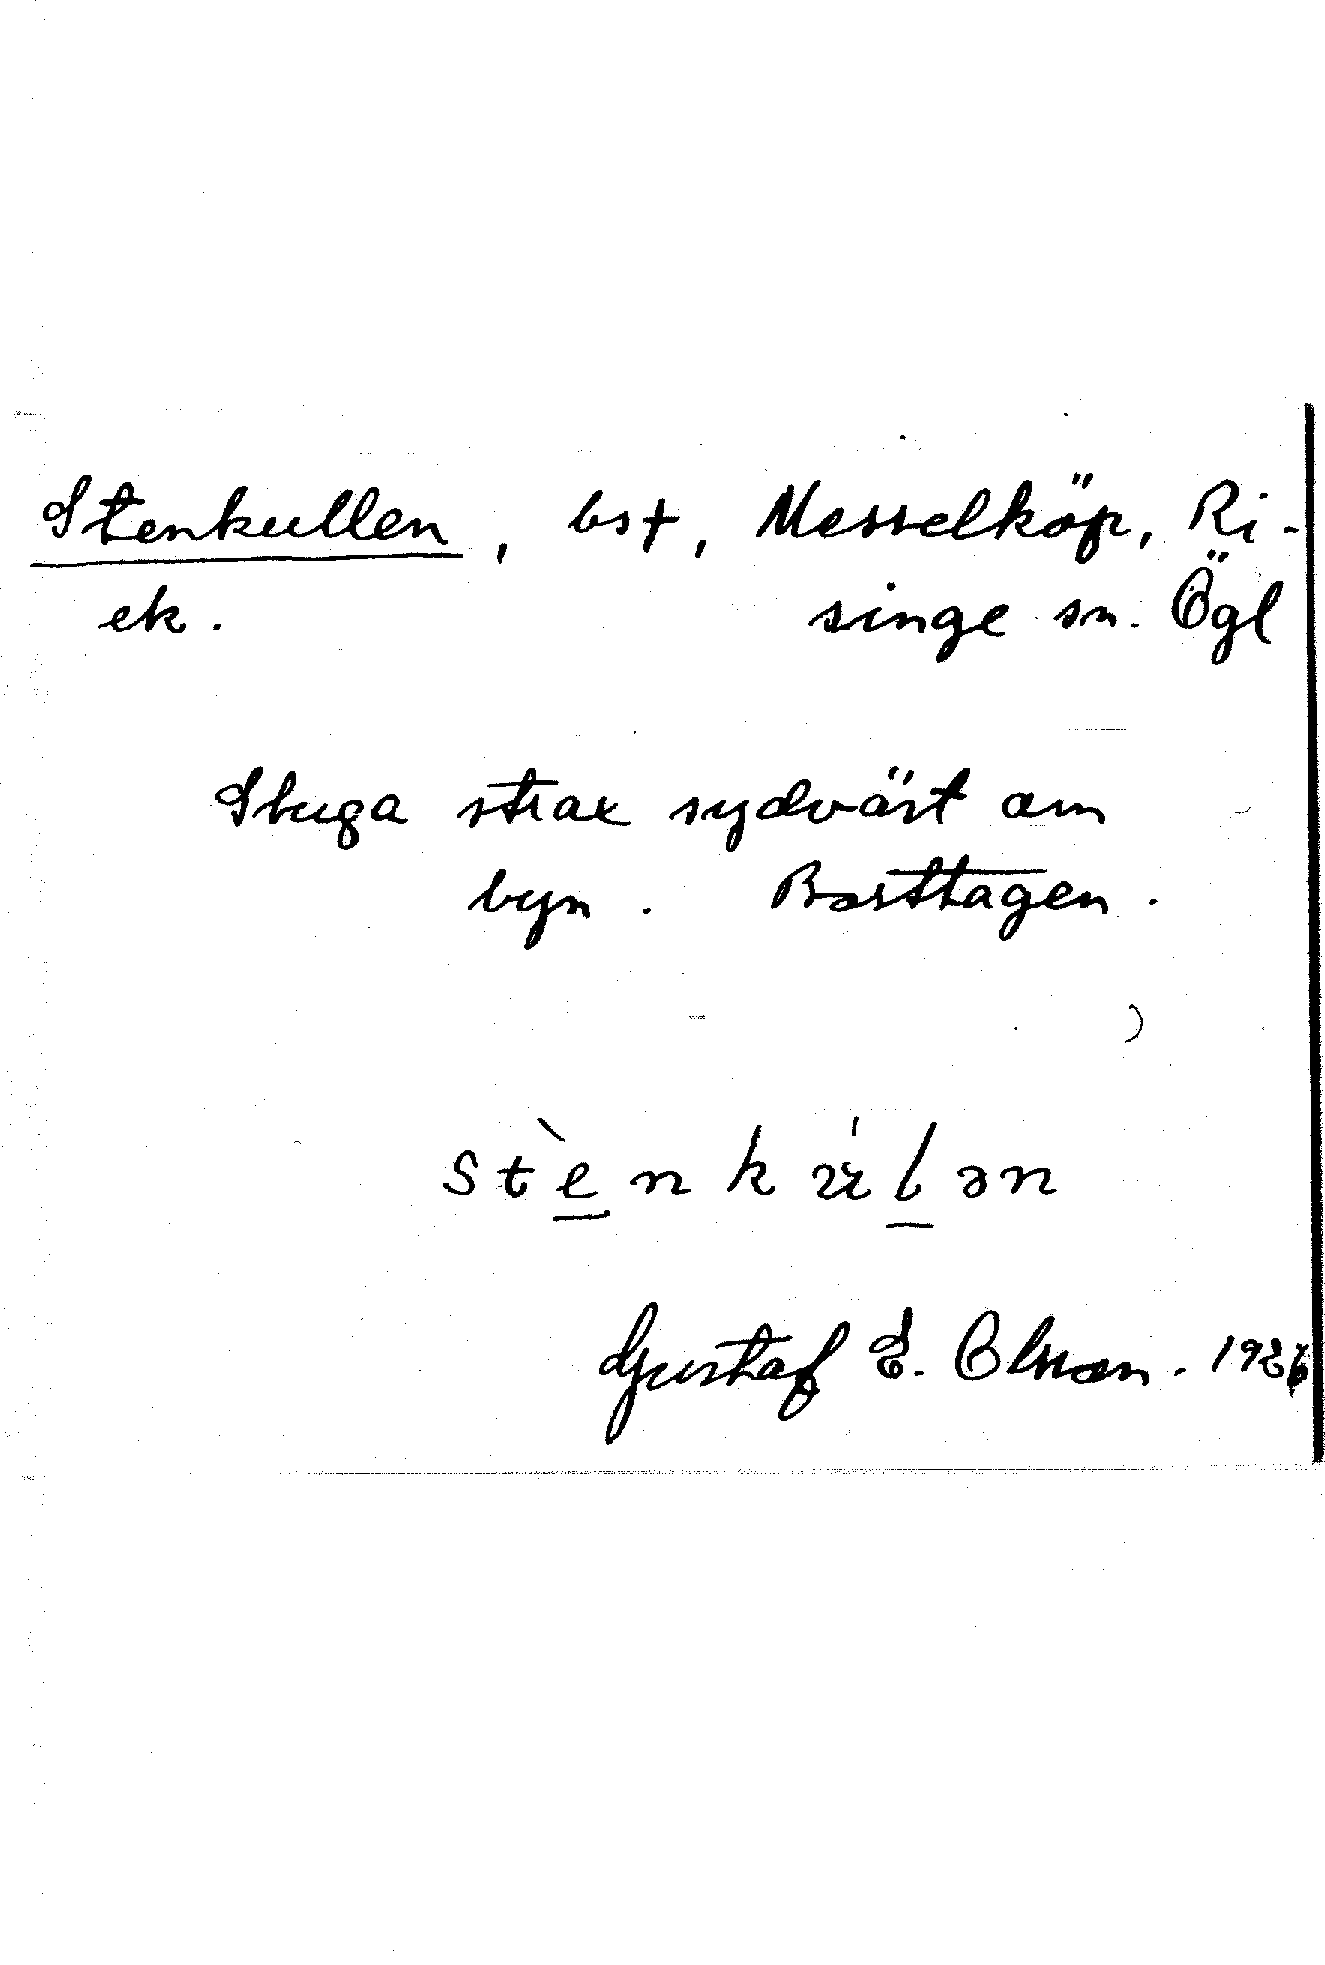 Stenkullen, bst, Messelköp, Ri-
ek. singe sn. Ögl
Stuga strax sydväst om
byn. Borttagen.
Gustaf E. Olsson. 1926